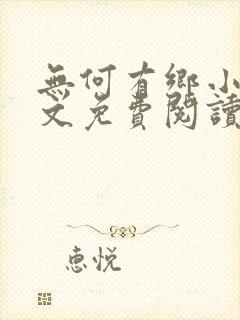 無何有鄉小
文免費閱讀
惠悅